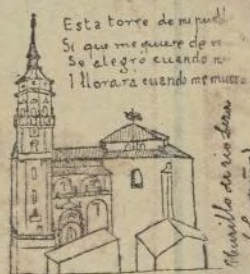 Esta torre de mi puebl
Si que me quiere de ve
Se alegró cuando n
I llorara cuando me muero
Murillo de rio Leza